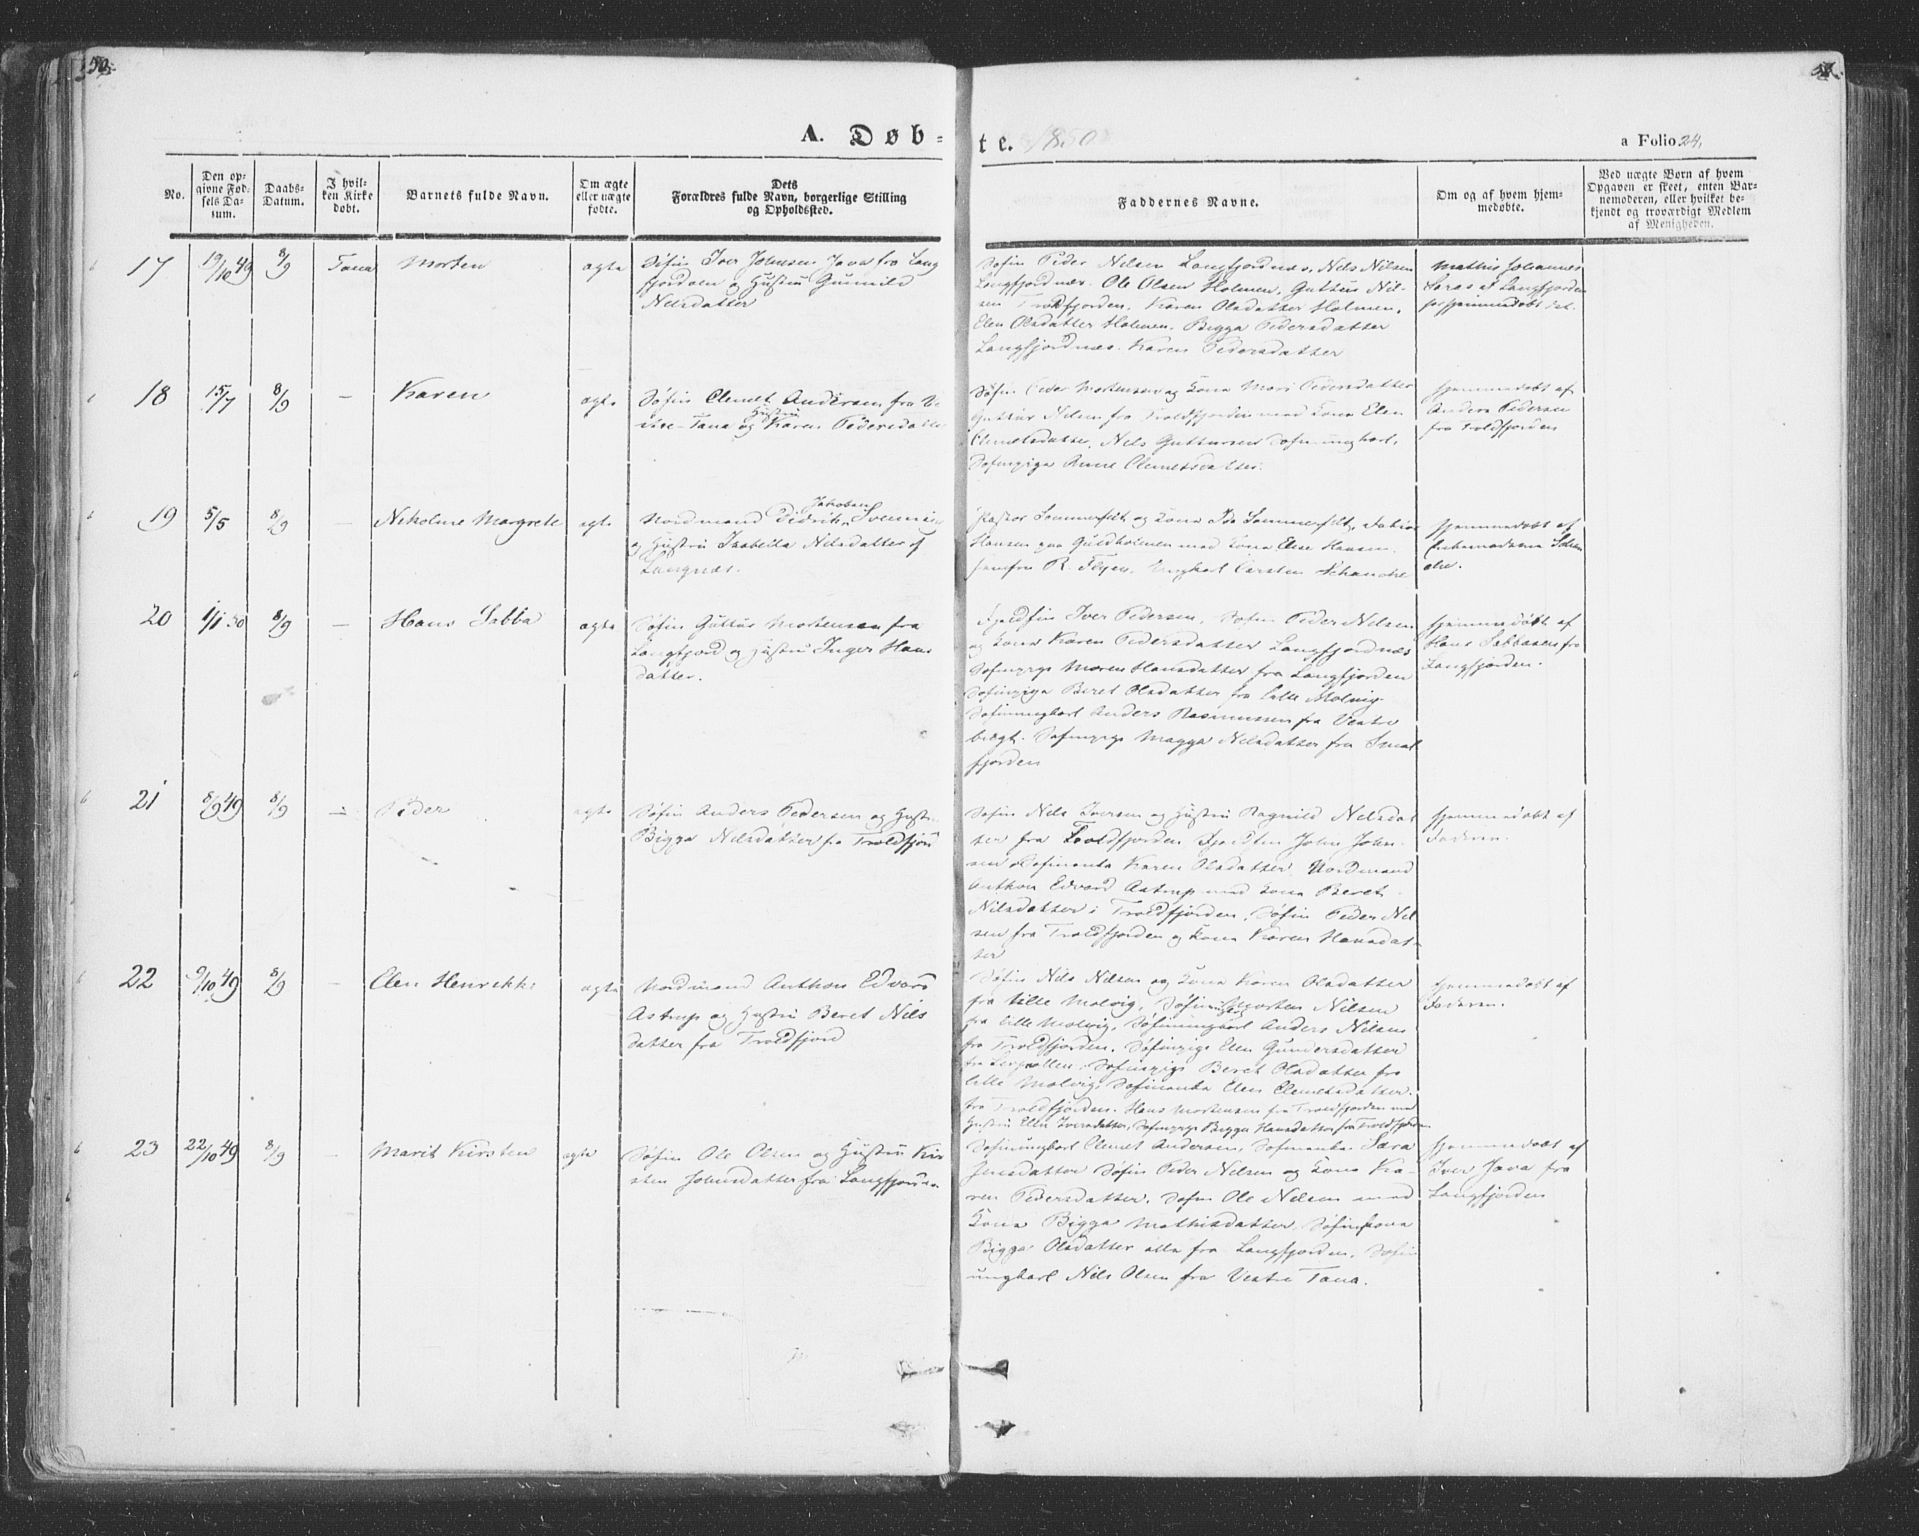 50.
51.
A. Døb-
te. 1850
a Folio 24.
No.
Den op-
givne Fød-
sels Da-
tum.
Daabs-
Datum.
I hvil-
ken Kirke
døbt.
Barnets fulde Navn.
Om ægte
eller uægte
fødte.
Dets
Forældres fulde Navn, borgerlige Stilling
og Opholdsted.
Faddernes Navne.
Om og af hvem hjem-
medøbte.
Ved uægte Børn af hvem
Opgaven er skeet, enten Bar-
nemoderen, eller hvilket be-
kjendt og troværdigt Medlem
af Menigheden.
17
19/10 49
8/9
Tana
Morten
ægte
Søfin Iver Johnsen Java fra Lang
fjorden og Hustru Gunnild
Nilsdatter
Søfin Peder Nilsen Langfjordnæs, Nils Nilsen
Langfjordnæs. Ole Olsen Holmen, Guttur Nil-
sen Troldfjorden. Karen Olsdatter Holmen,
Elen Olsdatter Holmen. Bigga Pedersdatter
Langfjordnæs. Karen Pedersdatter
Mathis Johannes
af Langfjorden
18
15/7
8/9
–
Karen
ægte
Søfin Clemet Andersen fra Ve
stre-Tana og Hustru Karen Pedersdatter
Søfin Peder Mortensen og Kona Mari Pedersdatter
Guttur Nilsen fra Troldfjorden med Kona Elen
Clemetsdatter, Nils Guttursen Søfinungkarl,
Søfinpiga Anne Clemetsdatter.
hjemmedøbt af
Anders Pedersen
fra Troldfjorden
19
5/5
8/9
–
Nikoline Margrete
ægte
Nordmand Didrik Jakobsen
og Hustru Isabella Nilsdatter af
Langnæs.
Pastor Sommerfelt og Kona Ida Sommerfelt,
Hansen paa Guldholmen med Kona Else Hansen.
Jomfru R. Ungkarl Carsten Schanche
hjemmedøbt af
20
1/1 50
8/9
–
Hans Sabba
ægte
Søfin Guttur Mortensen fra
Langfjord og Hustru Inger Hans
datter.
Fjeldfin Iver Pedersen, Søfin Peder Nilsen
og Kona Karen Pedersdatter Langfjordnæs
Søfinpige Maren Hansdatter fra Langfjorden
Søfinpiga Beret Olsdatter fra lille Molvig
Søfinungkarl Anders Rasmussen fra Vestre
bugt. Søfinpige Magga Nilsdatter fra Smal
fjorden
hjemmedøbt af
Hans Sabbasen fra
Langfjorden.
21
8/9 49
8/9
–
Peder
ægte
Søfin Anders Pedersen og Hustr.
Bigga Nilsdatter fra Troldfjord
Søfin Nils Iversen og Hustru Ragnild Nilsdat
ter fra Troldfjorden Fjeldfin John John-
sen Søfinenka Karen Olsdatter, Nordmand
Anthon Edvard Astrup med Kona Beret
Nilsdatter i Troldfjorden, Søfin Peder Nil
sen fra Troldfjorden og Kona Karen Hansdat-
ter
hjemmedøbt af
Faderen.
22
9/10 49
8/9
–
Elen Henrikke
ægte
Nordmand Anthon Edvard
Astrup og Hustru Beret Nils
datter fra Troldfjord
Søfin Nils Nilsen og Kona Karen Olsdatter
fra lille Molvig, Søfinungkarl Morten Nilsen
fra lille Molvig, Søfinungkarl Anders Nilsen
fra Troldfjorden, Søfinpige Elen Gundersdatter
fra Leirpollen, Søfinpige Beret Olsdatter fra
lille Molvig, Søfinenka Elen Clemetsdatter
fra Troldfjorden. Hans Mortensen fra Troldfjorden med
Hustru Elen Iversdatter, Søfinpige Bigga Hansdatter fra Troldfjorden
hjemmedøbt af
Faderen.
23
22/10 49
8/9
–
Marit Kirsten
ægte
Søfin Ole Olsen og Hustru Kir
sten Johnsdatter fra Langfjorden
Søfinungkarl Clemet Andersen, Søfinenka Sara
Jensdatter Søfin Peder Nilsen og Kona Ka-
ren Pedersdatter, Søfin Ole Nilsen med
Kona Bigga Mathisdatter, Søfinkona
Bigga Olsdatter alle fra Langfjorden, Søfin
ungkarl Nils Olsen fra Vestre Tana.
hjemmedøbt af
Iver Java fra
Langfjorden